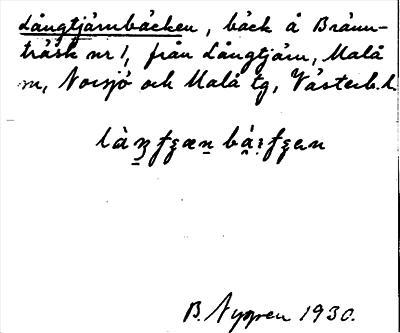 Långtjärnbäcken, bäck å Bränn-
träsk nr 1, från Långtjärn, Malå
sn, Norsjö och Malå tg, Västerb. l.
B. Nygren 1930.